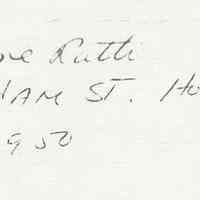 Rutti
HAM ST. Ho
950